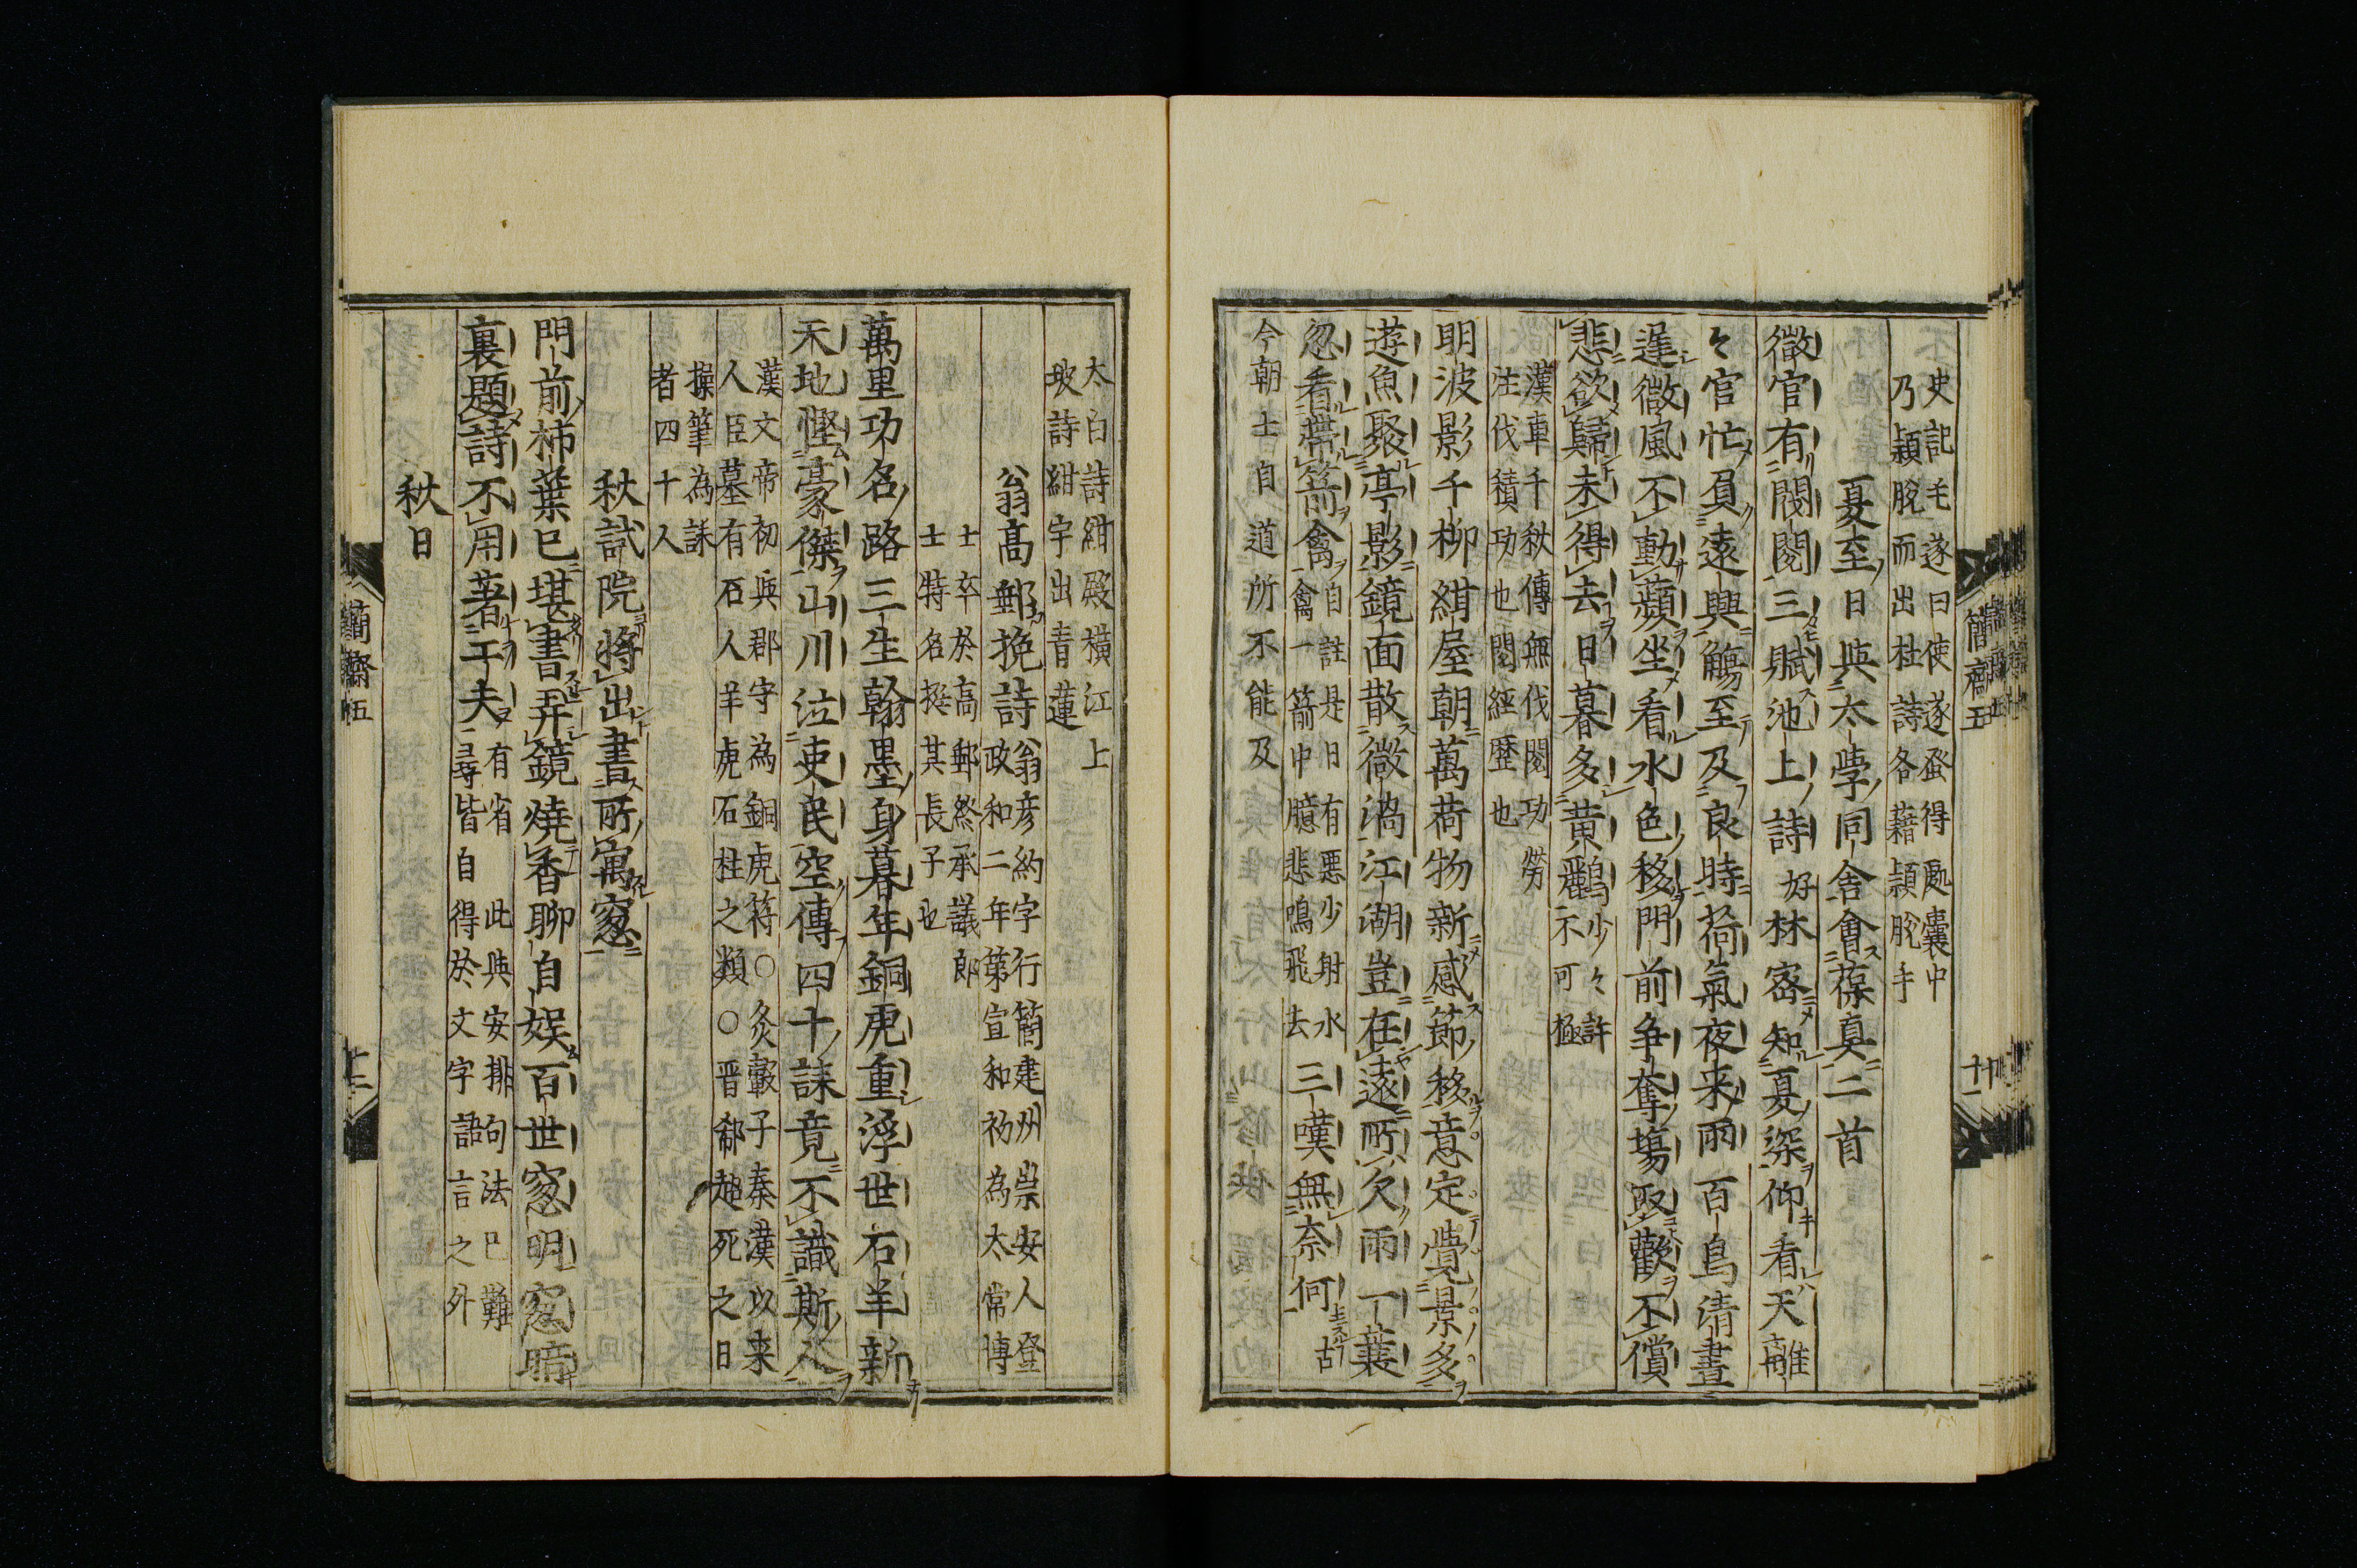 史記毛遂曰使遂蚤得處囊中
乃穎脫而出杜詩各藉穎脫手
夏至日與太學同舍會葆真二首
微官有閥閱三賦池上詩好林密知夏深仰看天離
々官忙負遠興觴至及良時荷氣夜来雨百鳥清晝
遲微風不動蘋坐看水色移門前争奪塲取歡不償
悲欲歸未得去日暮多黄鸝少々許
不可極
漢車千秋傳無伐閱功勞
注伐積功也閱經歷也
明波影千柳紺屋朝萬荷物新感節移意定覺景多
遊魚聚亭影鏡面散微渦江湖豈在遠所欠雨一蓑
忽看帶箭禽自註是日有惡少射水
禽一箭中臆悲鳴飛去三嘆無奈何古
今朝士自道所不能及
簡齋五
十一
太白詩紺殿橫江上
坡詩紺宇出青蓮
翁高郵挽詩翁彦約字行簡建州崇安人登
政和二年第宣和初為太常博
士卒於高郵終承議郎
士特名挺其長子也
萬里功名路三生翰墨身暮年銅虎重浮世石羊新
天地慳豪傑山川泣吏民空傳四十誄竟不識斯人
漢文帝初與郡守為銅虎符○炙轂子秦漢以来
人臣墓有石人羊虎石柱之類○晋郗超死之日
操筆為誄
者四十人
秋試院將出書所寓窓
門前柿葉已堪書弄鏡燒香聊自娯百世窓明窓暗
裏題詩不用著工夫有省此與安排句法已難
尋皆自得於文字語言之外
秋日
簡齋五
十二